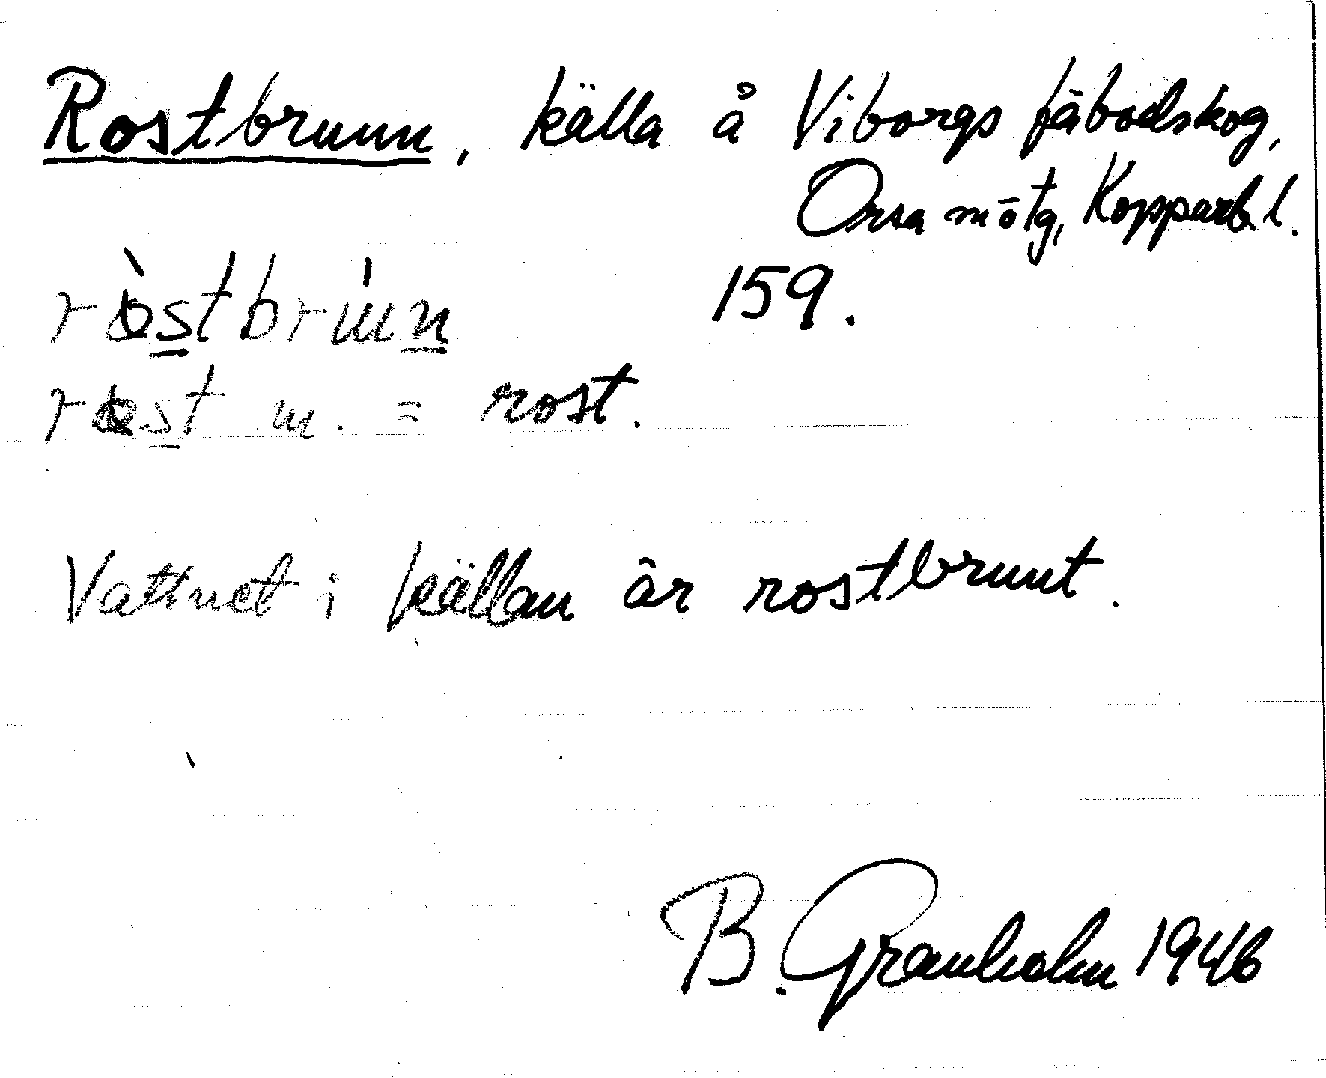 Rostbrunn, källa å Viborgs fäbodskog,
Orsa mötg, Kopparb. l.
ròstbrúnn 159.
rost m. = rost.
Vattnet i källan är rostbrunt.
B. Granholm 1946